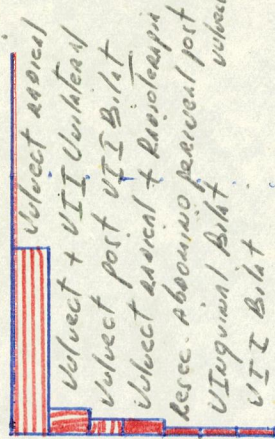 Vulvect radical
Vulvect + VII Unilateral
Vulvect post VII Bilat
Vulvect radical + Radioterapia
Resec. Abdomino perineal post
vulvec
VInguinal Bilat
VII Bilat